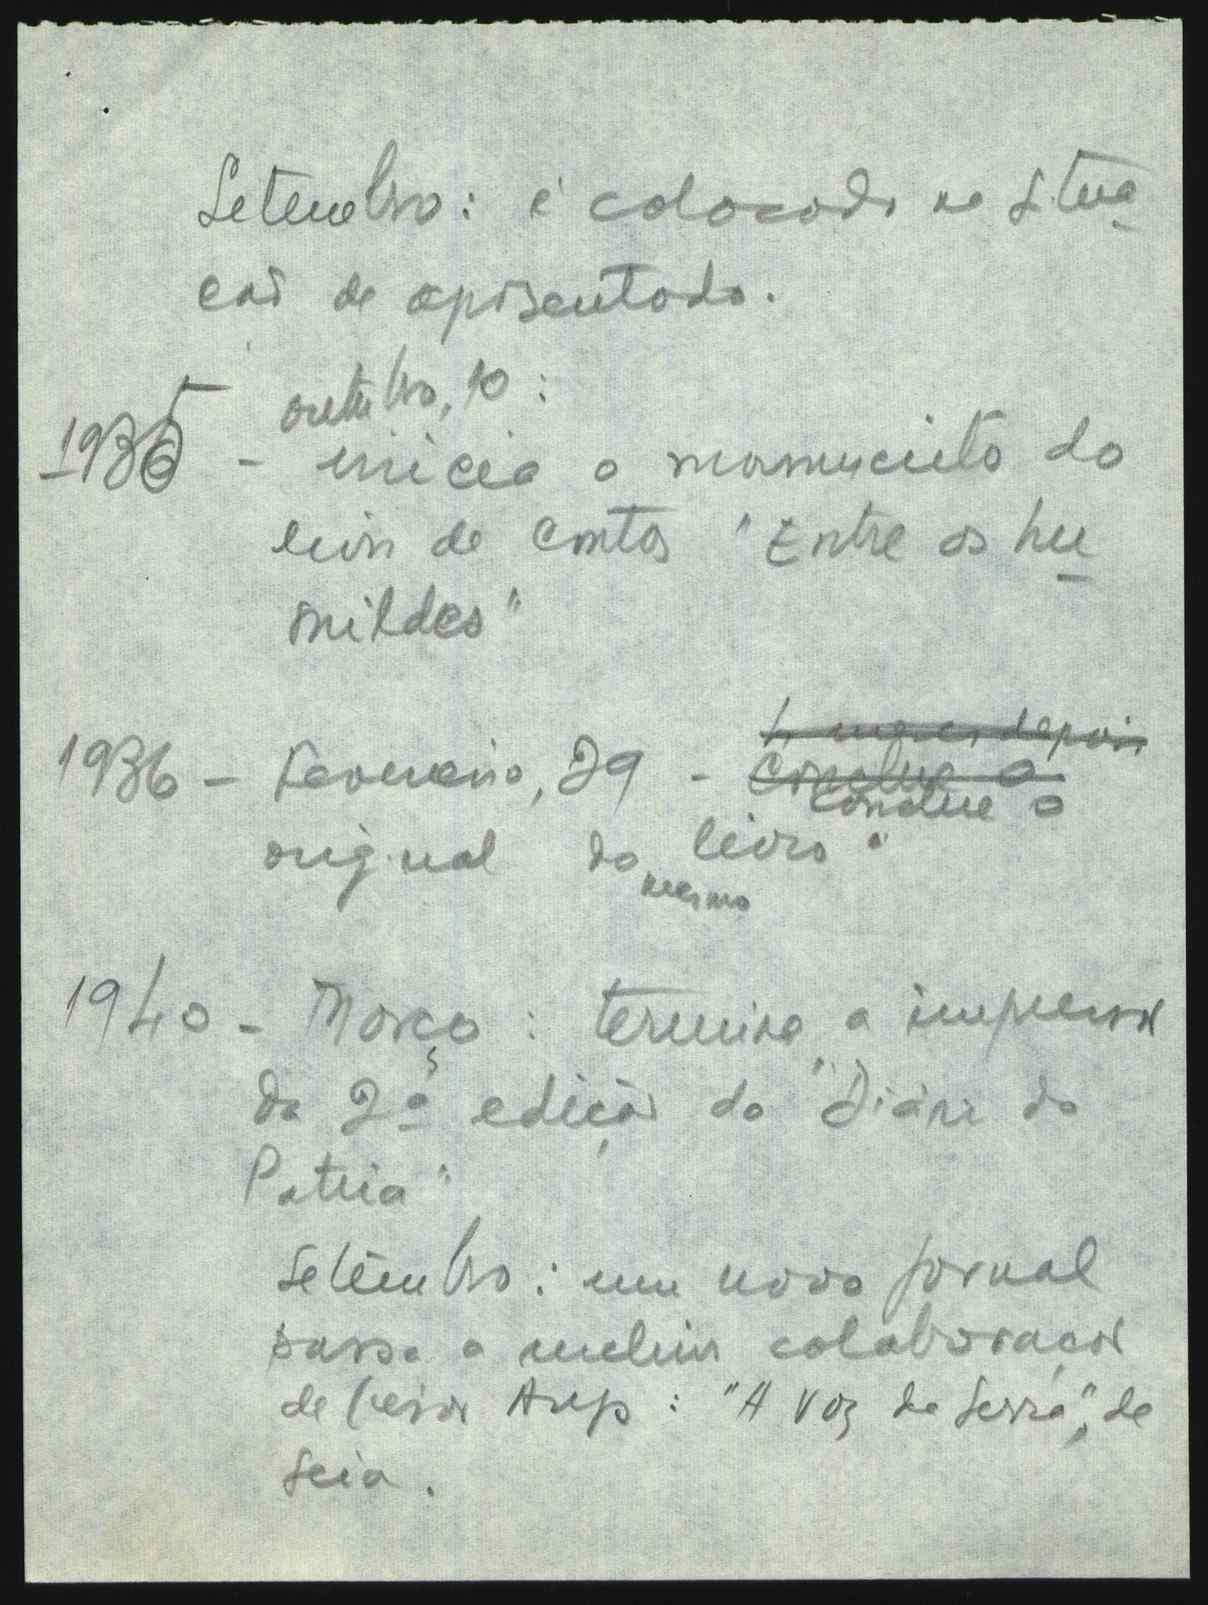 Setembro: é colocado na situa
ção de aposentado.
outubro, 10:
1935 - inicia o manuscrito do
livro de contos "Entre os hu
mildes"
4 meses depois
1936 - Fevereiro, 29 - conclue o
conclue o
original do mesmo livro.
1940 - Março: termina a impressão
da 2ª edição do "Diário da
Patria"
Setembro: um novo jornal
passa a incluir colaboração
de César Anjo: "A Voz da Serra", de
Seia.